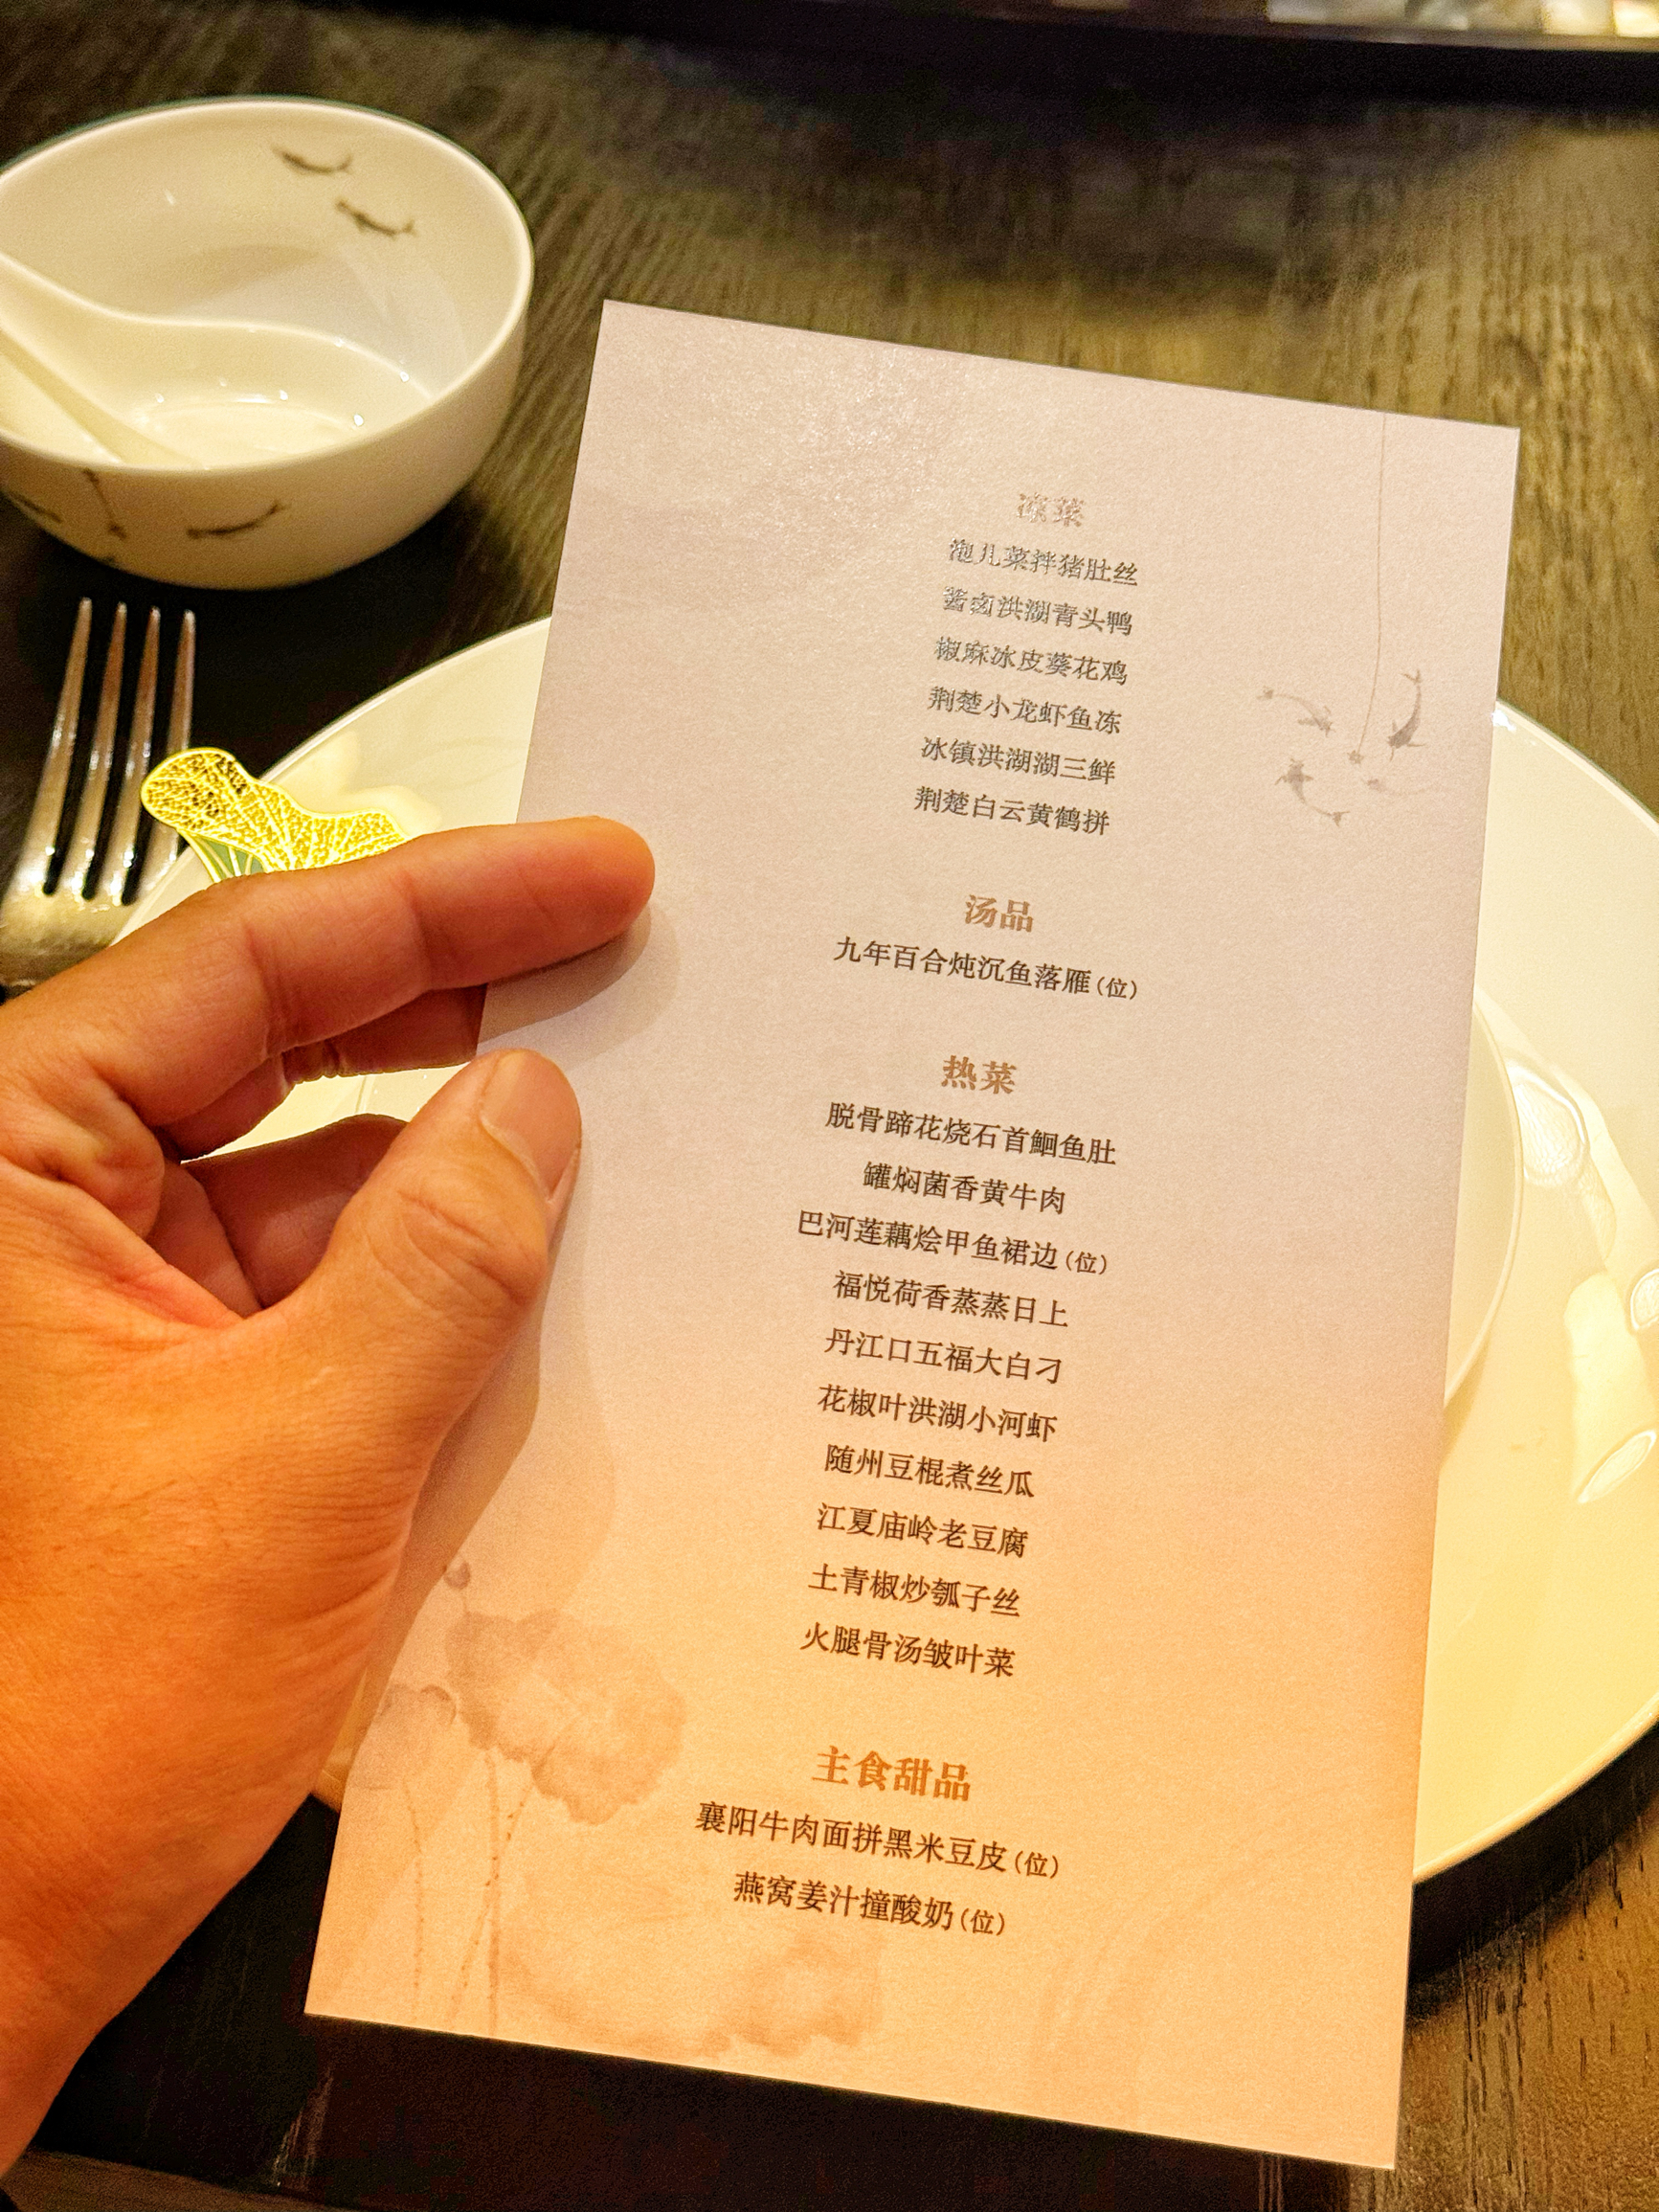 凉菜
泡儿菜拌猪肚丝
酱卤洪湖青头鸭
椒麻冰皮葵花鸡
荆楚小龙虾鱼冻
冰镇洪湖湖三鲜
荆楚白云黄鹤拼
汤品
九年百合炖沉鱼落雁(位)
热菜
脱骨蹄花烧石首鮰鱼肚
罐焖菌香黄牛肉
巴河莲藕烩甲鱼裙边(位)
福悦荷香蒸蒸日上
丹江口五福大白刁
花椒叶洪湖小河虾
随州豆棍煮丝瓜
江夏庙岭老豆腐
土青椒炒瓠子丝
火腿骨汤皱叶菜
主食甜品
襄阳牛肉面拼黑米豆皮(位)
燕窝姜汁撞酸奶(位)